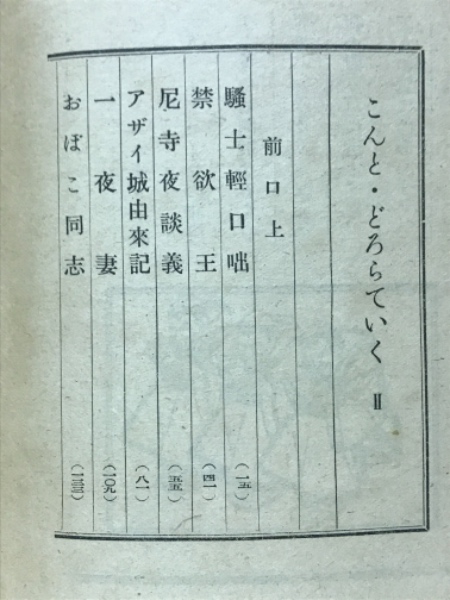 こんと・どろらていく Ⅱ
前口上
騷士輕口咄 (一五)
禁欲王 (四一)
尼寺夜談義 (五五)
アザイ城由來記 (八一)
一夜妻 (一〇九)
おぼこ同志 (一三三)